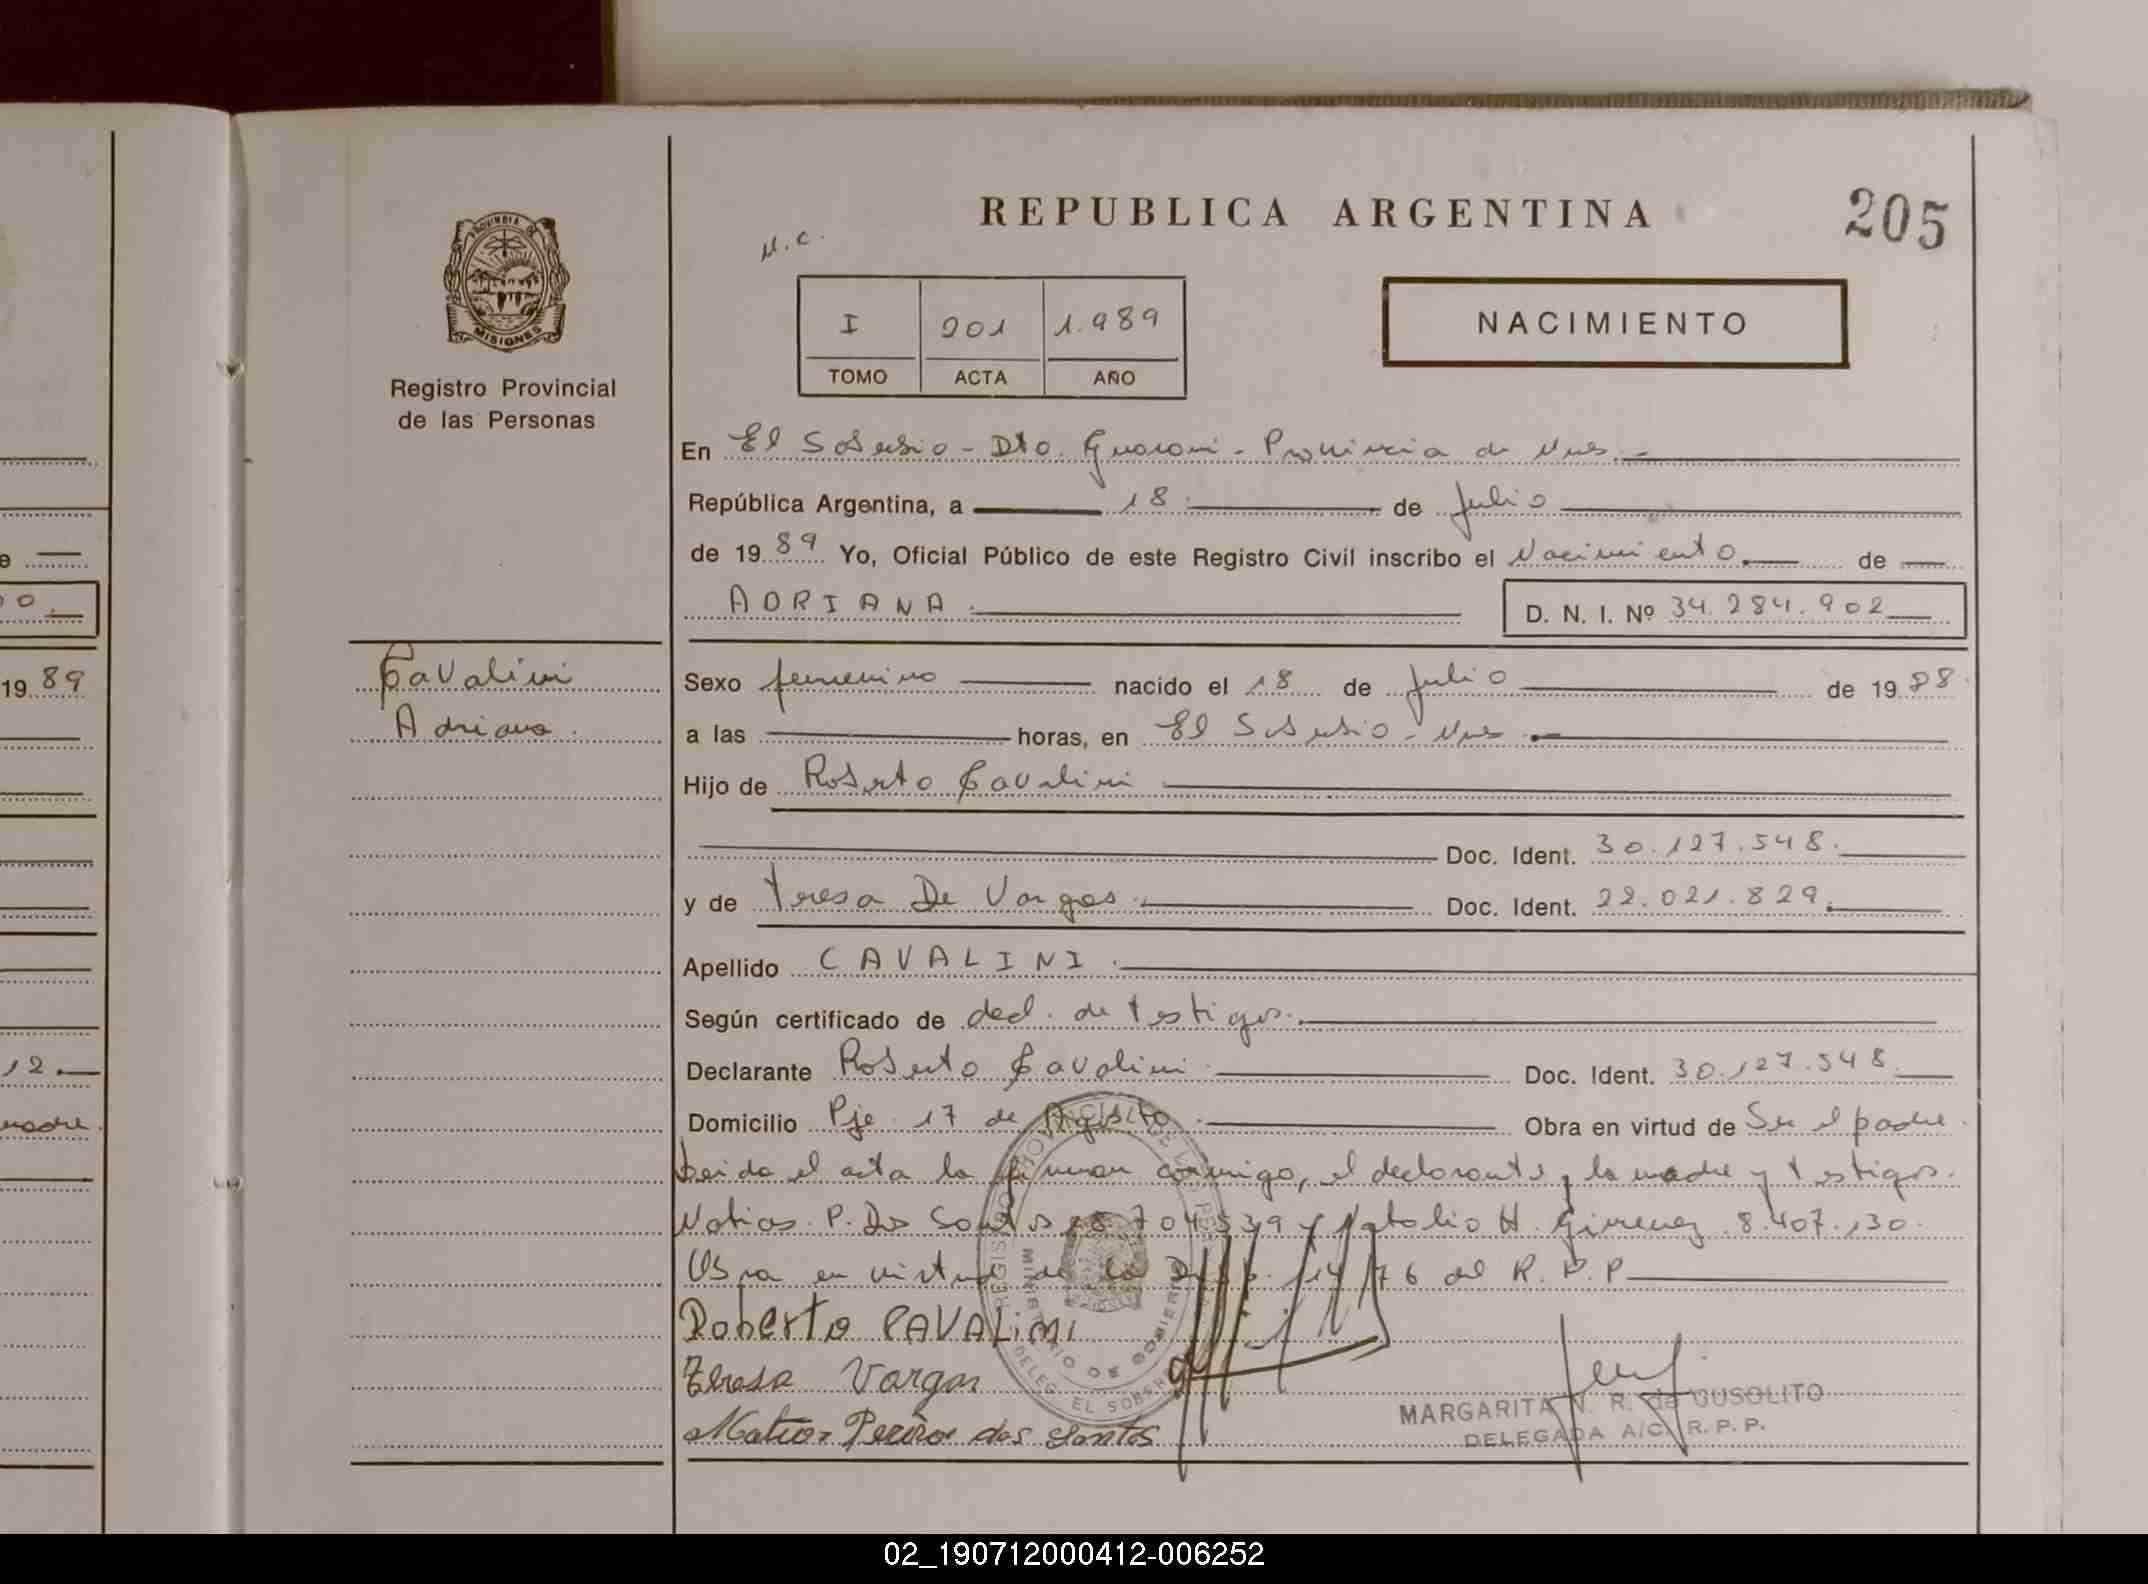 REPUBLICA ARGENTINA
205
PROVINCIA DE
MISIONES
Registro Provincial
de las Personas
I 201 1.989
TOMO ACTA AÑO
NACIMIENTO
En El Soberbio - Dto. Guarani - Provincia de Mnes. -
República Argentina, a 18 de Julio
de 19 89 Yo, Oficial Público de este Registro Civil inscribo el Nacimiento de
ADRIANA D. N. I. Nº 34.284.902
Cavalini
Adriana.
Sexo femenino nacido el 18 de Julio de 19 88
a las horas, en El Soberbio - Mnes
Hijo de Roberto Cavalini
Doc. Ident. 30.127.548.
y de Teresa De Vargas. Doc. Ident. 22.021.829.
Apellido CAVALINI.
Según certificado de decl. de testigos.
Declarante Roberto Cavalini. Doc. Ident. 30.127.548.
Domicilio Pje. 17 de Agosto. Obra en virtud de Ser el padre.
Leida el acta la firman conmigo, el declarante, la madre y testigos.
Matias P. Dos Santos 704.539 y Natalio H. Gimenez 8.407.130.
Obra en virtud de la Disp. 114/76 del R. P. P
Roberto CAVALiNi
Teresa Vargas
dos santos
MARGARITA N. R. de GUSOLITO
DELEGADA A/C. R. P. P.
REGISTRO PROVINCIAL DE LAS PERSONAS
MINISTERIO DE GOBIERNO
DELEG. EL SOBERBIO
19 89
12.
madre.
02_190712000412-006252